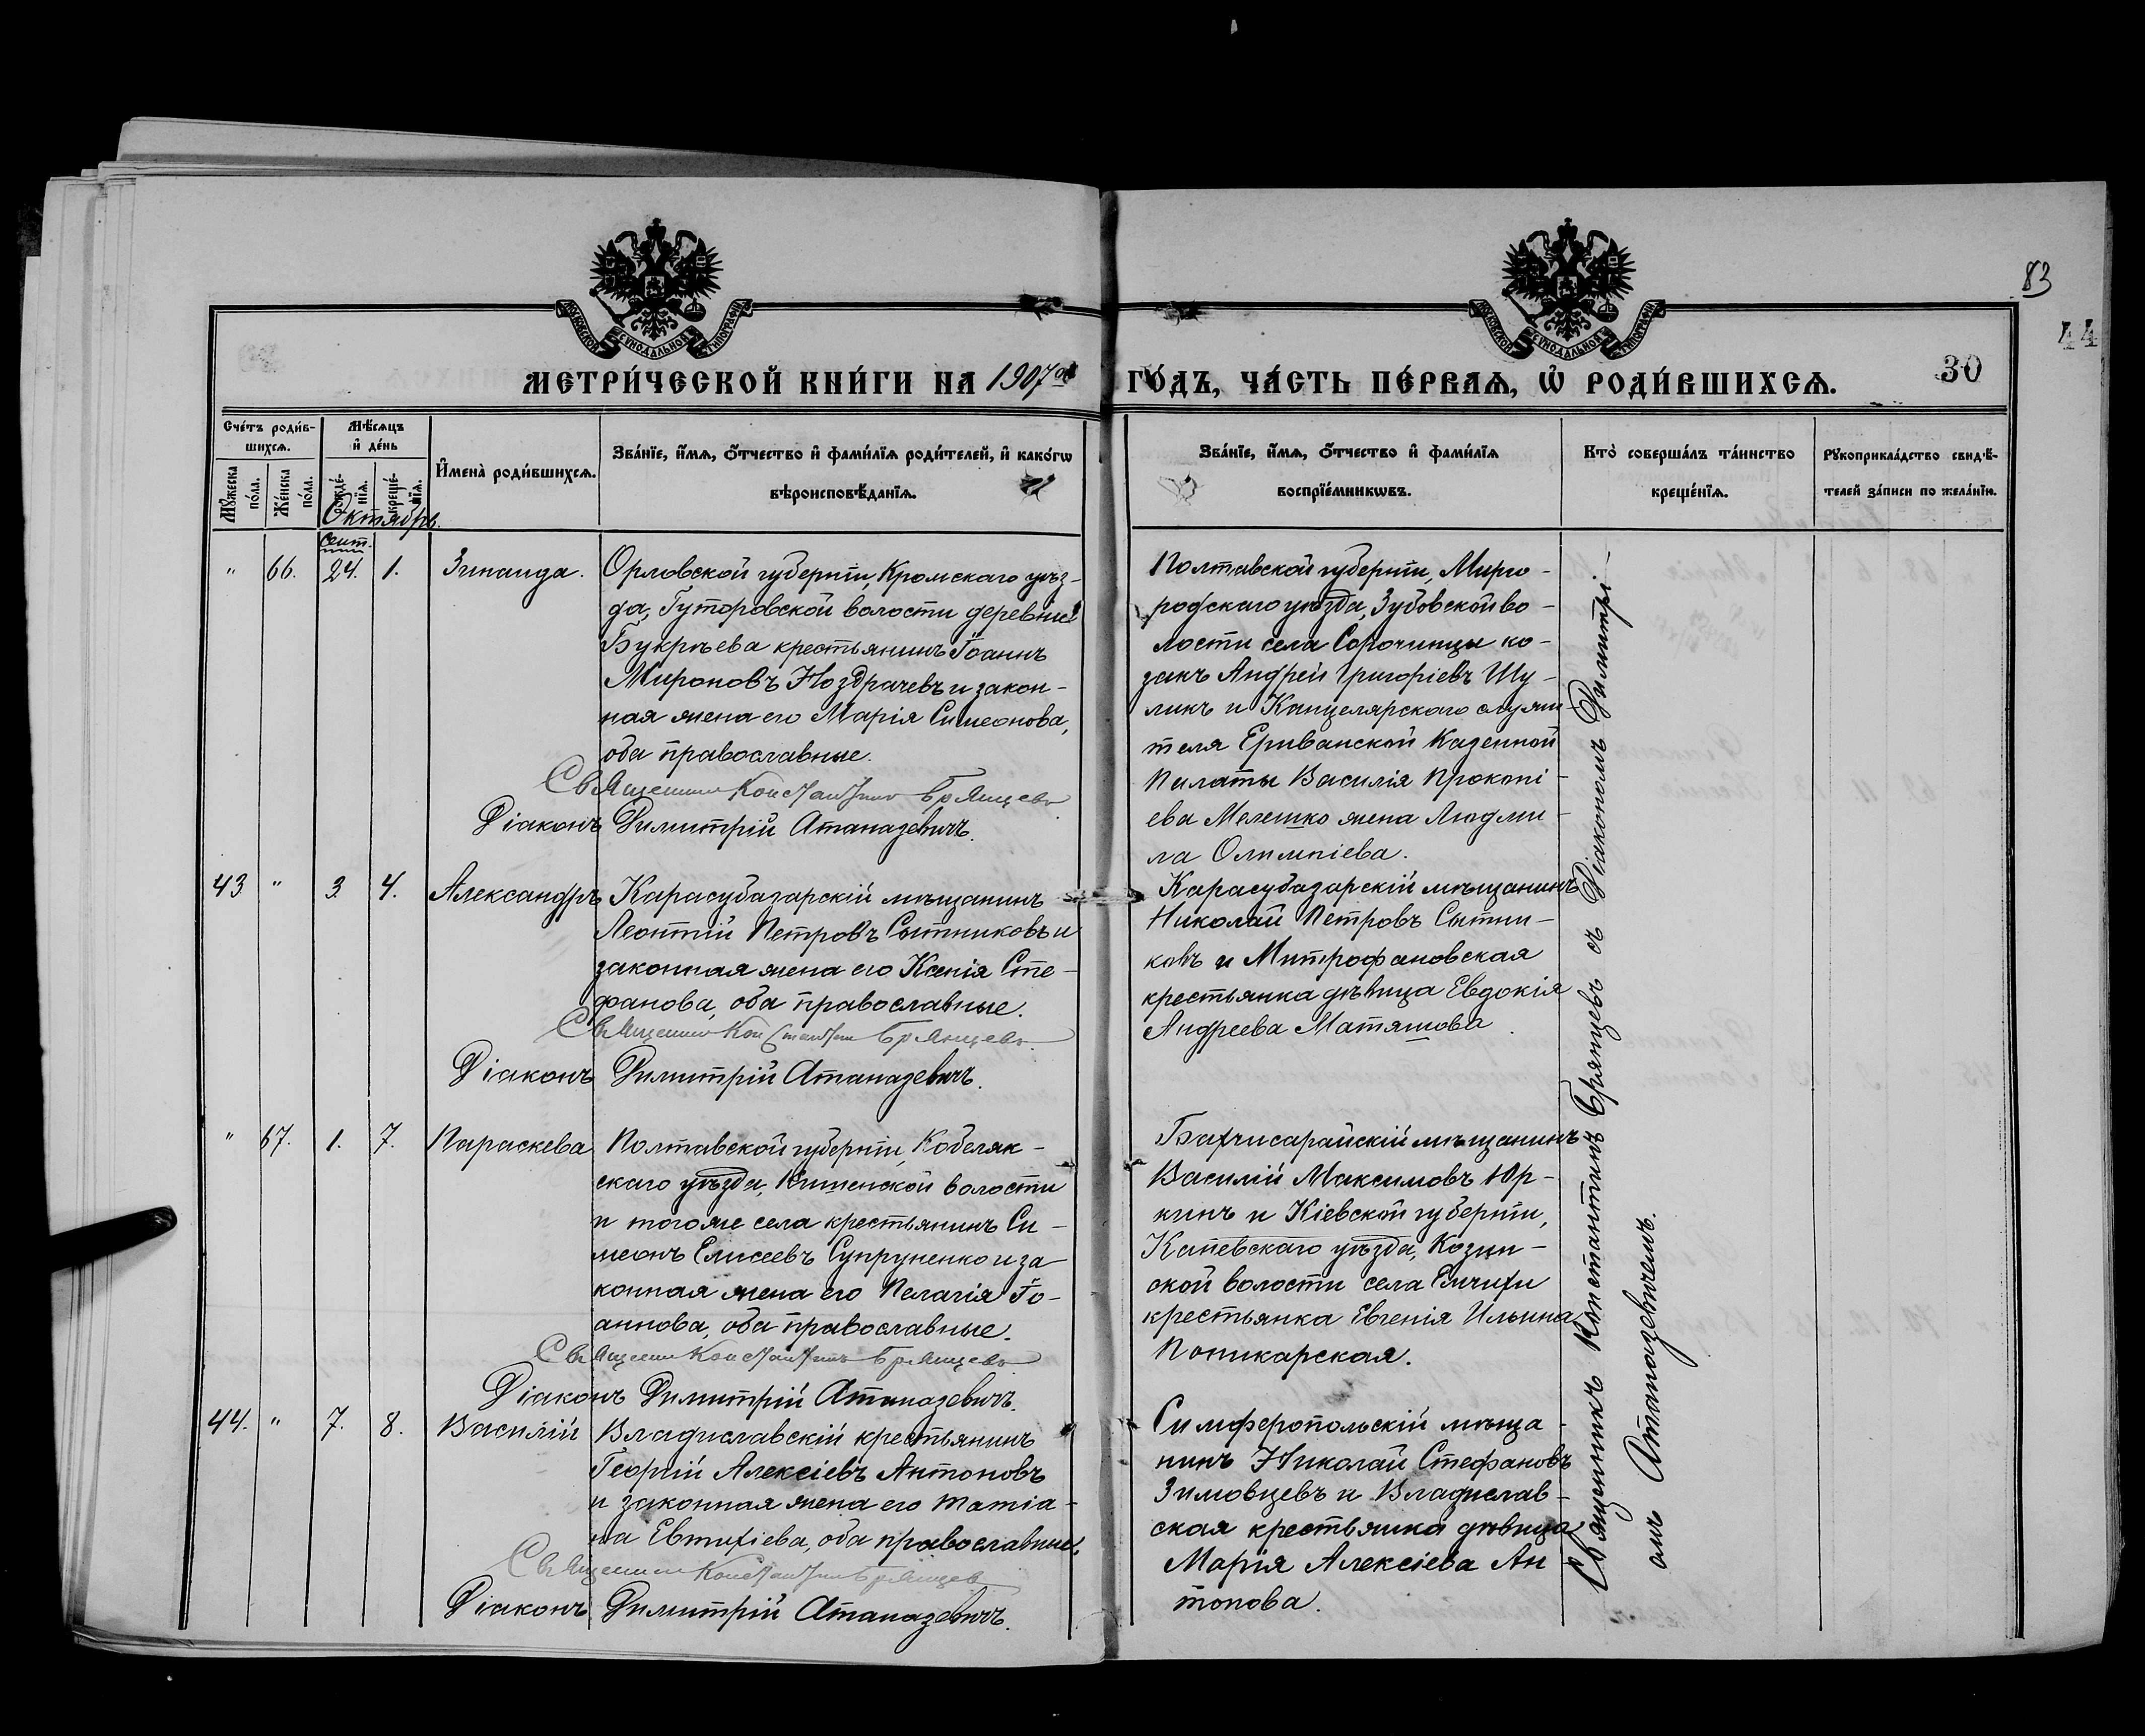 МОСКОВСКОЙ СѴНОДАЛЬНОЙ ТИПОГРАФІИ
МОСКОВСКОЙ СѴНОДАЛЬНОЙ ТИПОГРАФІИ
83
44
30
МЕТРИ́ЧЕСКОЙ КНИ́ГИ НА 1907ой ГО́ДЪ, ЧА́СТЬ ПЕ́РВАѦ, Ѡ҆ РОДИ́ВШИХСѦ.
Сче́тъ роди́в-
шихсѧ.
Мꙋ́жеска по́ла.
Же́нска по́ла.
Мѣ́сѧцъ
и҆ де́нь
рожде́-
нїѧ.
креще́-
нїѧ.
И҆мена̀ роди́вшихсѧ.
Зва́нїе, и҆́мѧ, ѻ҆́тчество и҆ фами́лїѧ роди́телей, и҆ како́гѡ
вѣроисповѣ́данїѧ.
Зва́нїе, и҆́мѧ, ѻ҆́тчество и҆ фами́лїѧ
воспрїе́мникѡвъ.
Кто̀ соверша́лъ та́инство
креще́нїѧ.
Рꙋкоприкла́дство свидѣ́-
телей за́писи по жела́нїю.
Октябрь.
Сент.
" 66. 24. 1. Зинаида.
Орловской губерніи, Кромскаго уѣз-
да, Гуторовской волости деревни
Букрѣева крестьянинъ Іоаннъ
Мироновъ Ноздрачевъ и закон-
ная жена его Марія Симеонова,
оба православные.
Священникъ Константинъ Брянцевъ
Діаконъ Димитрій Атаназевичъ.
Полтавской губерніи, Мирго-
родскаго уѣзда, Зубовской во-
лости села Сорочинцы ко-
закъ Андрей Григоріевъ Шу-
ликъ и Канцелярскаго служи-
теля Ериванской Казенной
Палаты Василія Прокопі-
ева Мелешко жена Людми-
ла Олимпіева.
43 " 3 4. Александръ
Карасубазарскій мѣщанинъ
Леонтій Петровъ Сытниковъ и
законная жена его Ксенія Сте-
фанова, оба православные.
Священникъ Константинъ Брянцевъ
Діаконъ Димитрій Атаназевичъ.
Карасубазарскій мѣщанинъ
Николай Петровъ Сытни-
ковъ и Митрофановская
крестьянка дѣвица Евдокія
Андреева Матяшова.
" 67. 1. 7. Параскева
Полтавской губерніи, Кобеляк-
скаго уѣзда, Кишенской волости
и того же села крестьянинъ Си-
меонъ Елисеевъ Супруненко и за-
конная жена его Пелагія Іо-
аннова, оба православные.
Священникъ Константинъ Брянцевъ
Діаконъ Димитрій Атаназевичъ.
Бахчисарайскій мѣщанинъ
Василій Максимовъ Юр-
кинъ и Кіевской губерніи,
Каневскаго уѣзда, Козин-
ской волости села
крестьянка Евгенія Ильина
Поникарская.
44. " 7. 8. Василій
Владиславскій крестьянинъ
Георгій Алексіевъ Антоновъ
и законная жена его Татіа-
на Евтихіева, оба православные.
Священникъ Константинъ Брянцевъ
Діаконъ Димитрій Атаназевичъ.
Симферопольскій мѣща-
нинъ Николай Стефановъ
Зимовцевъ и Владислав-
ская крестьянка дѣвица
Марія Алексіева Ан
тонова.
Священникъ Константинъ Брянцевъ съ Діакономъ Димитрі-
емъ Атаназевичемъ.